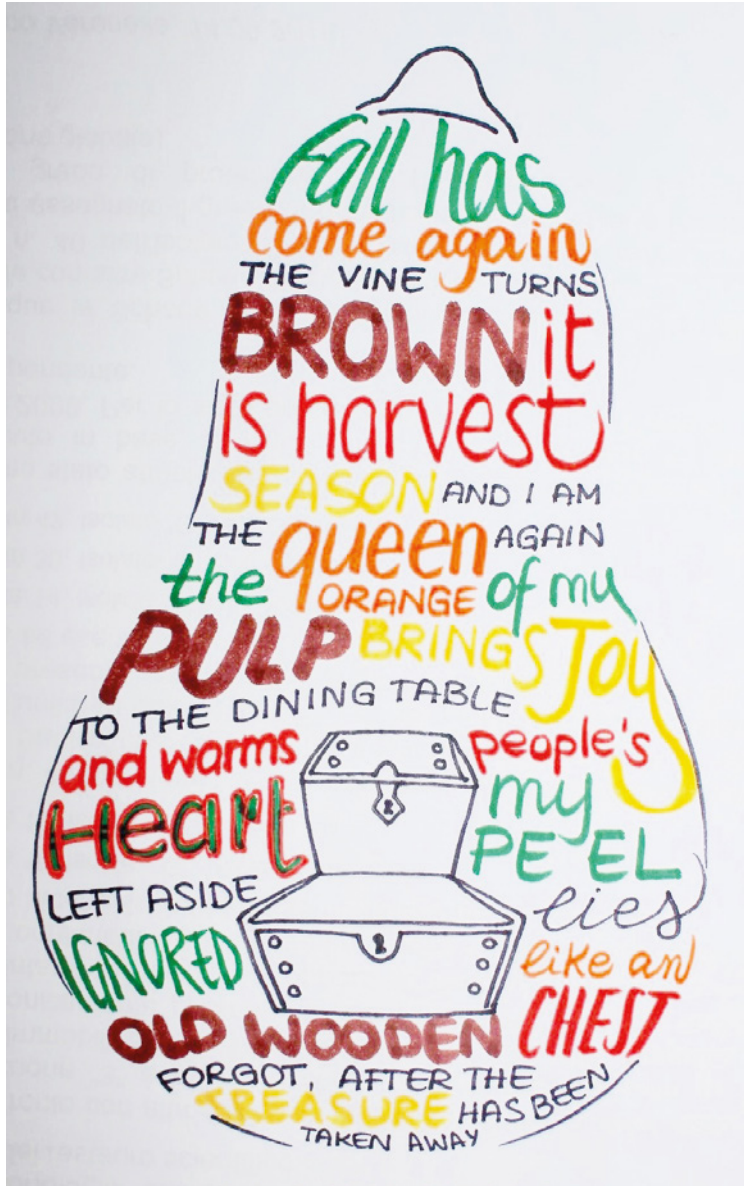 Fall has
come again
THE VINE TURNS
BROWN it
is harvest
SEASON AND I AM
THE queen AGAIN
the ORANGE of my
PULP BRINGS JOY
TO THE DINING TABLE
and warms people's
Heart my
PEEL
LEFT ASIDE lies
IGNORED like an
OLD WOODEN CHEST
FORGOT, AFTER THE
TREASURE HAS BEEN
TAKEN AWAY